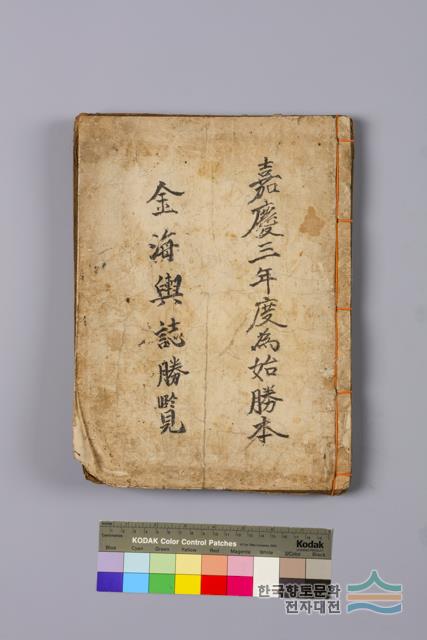 嘉慶三年度為始勝本
金海輿誌勝覽
KODAK Color Control Patches
Kodak
Blue Cyan Green Yellow Red Magenta White 3/Color Black
한국향토문화
전자대전